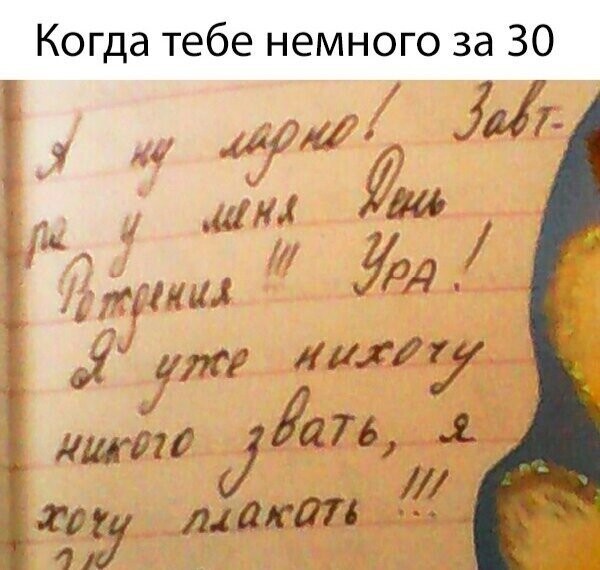 Когда тебе немного за 30
Я ну ладно! Завт-
ра у меня День
Рождения !!! Ура!
Я уже нихочу
никого звать, я
хочу плакать !!!